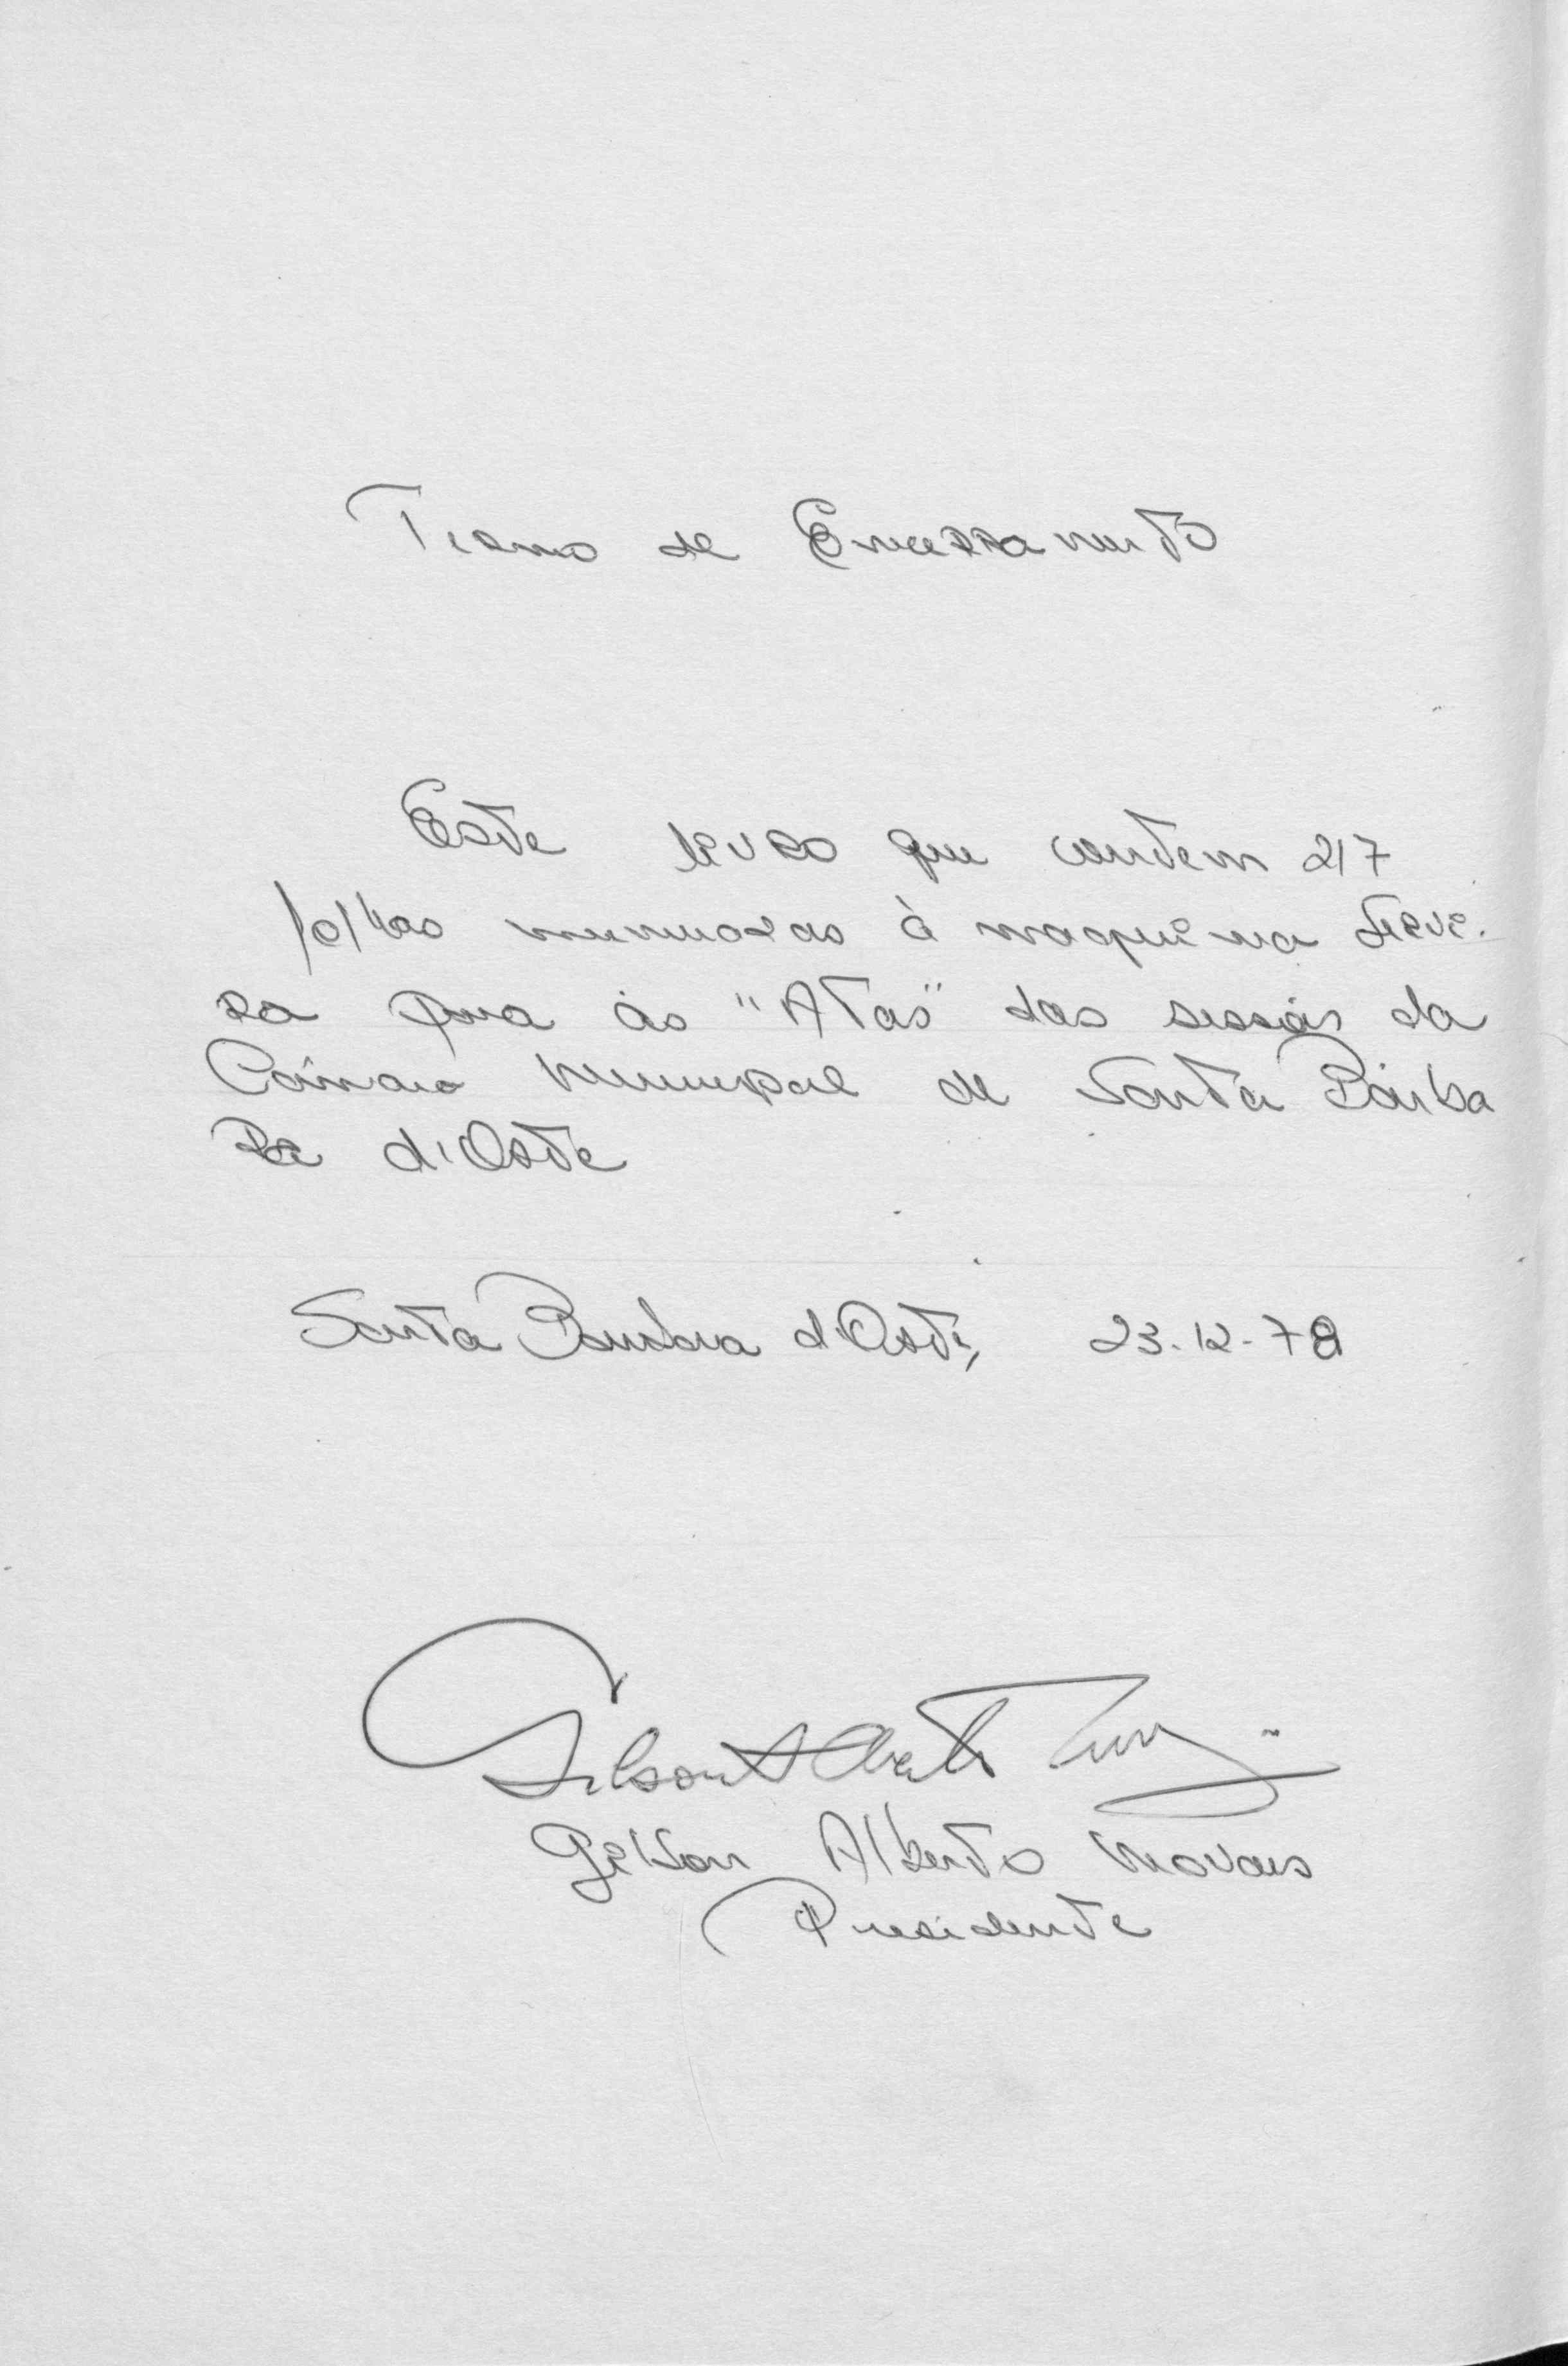 Termo de Encerramento
Este livro que contem 217
folhas numeradas à maquina servi-
ra para às "Atas" das sessões da
Câmara Municipal de Santa Bárba
ra d'Oeste
Santa Barbara d'Oeste, 23-12-78
Gilson Alberto Novaes
Presidente